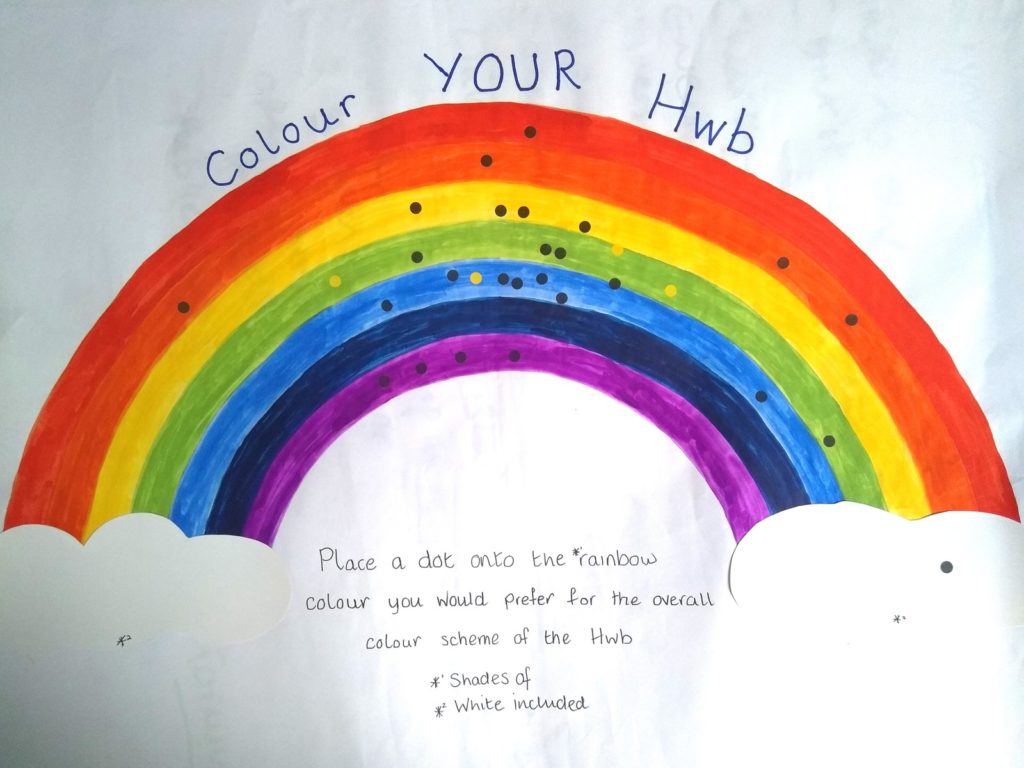 Colour YOUR Hwb
Place a dot onto the *rainbow
colour you would prefer for the overall
colour scheme of the Hwb
*¹ Shades of
*² White included
*²
*²